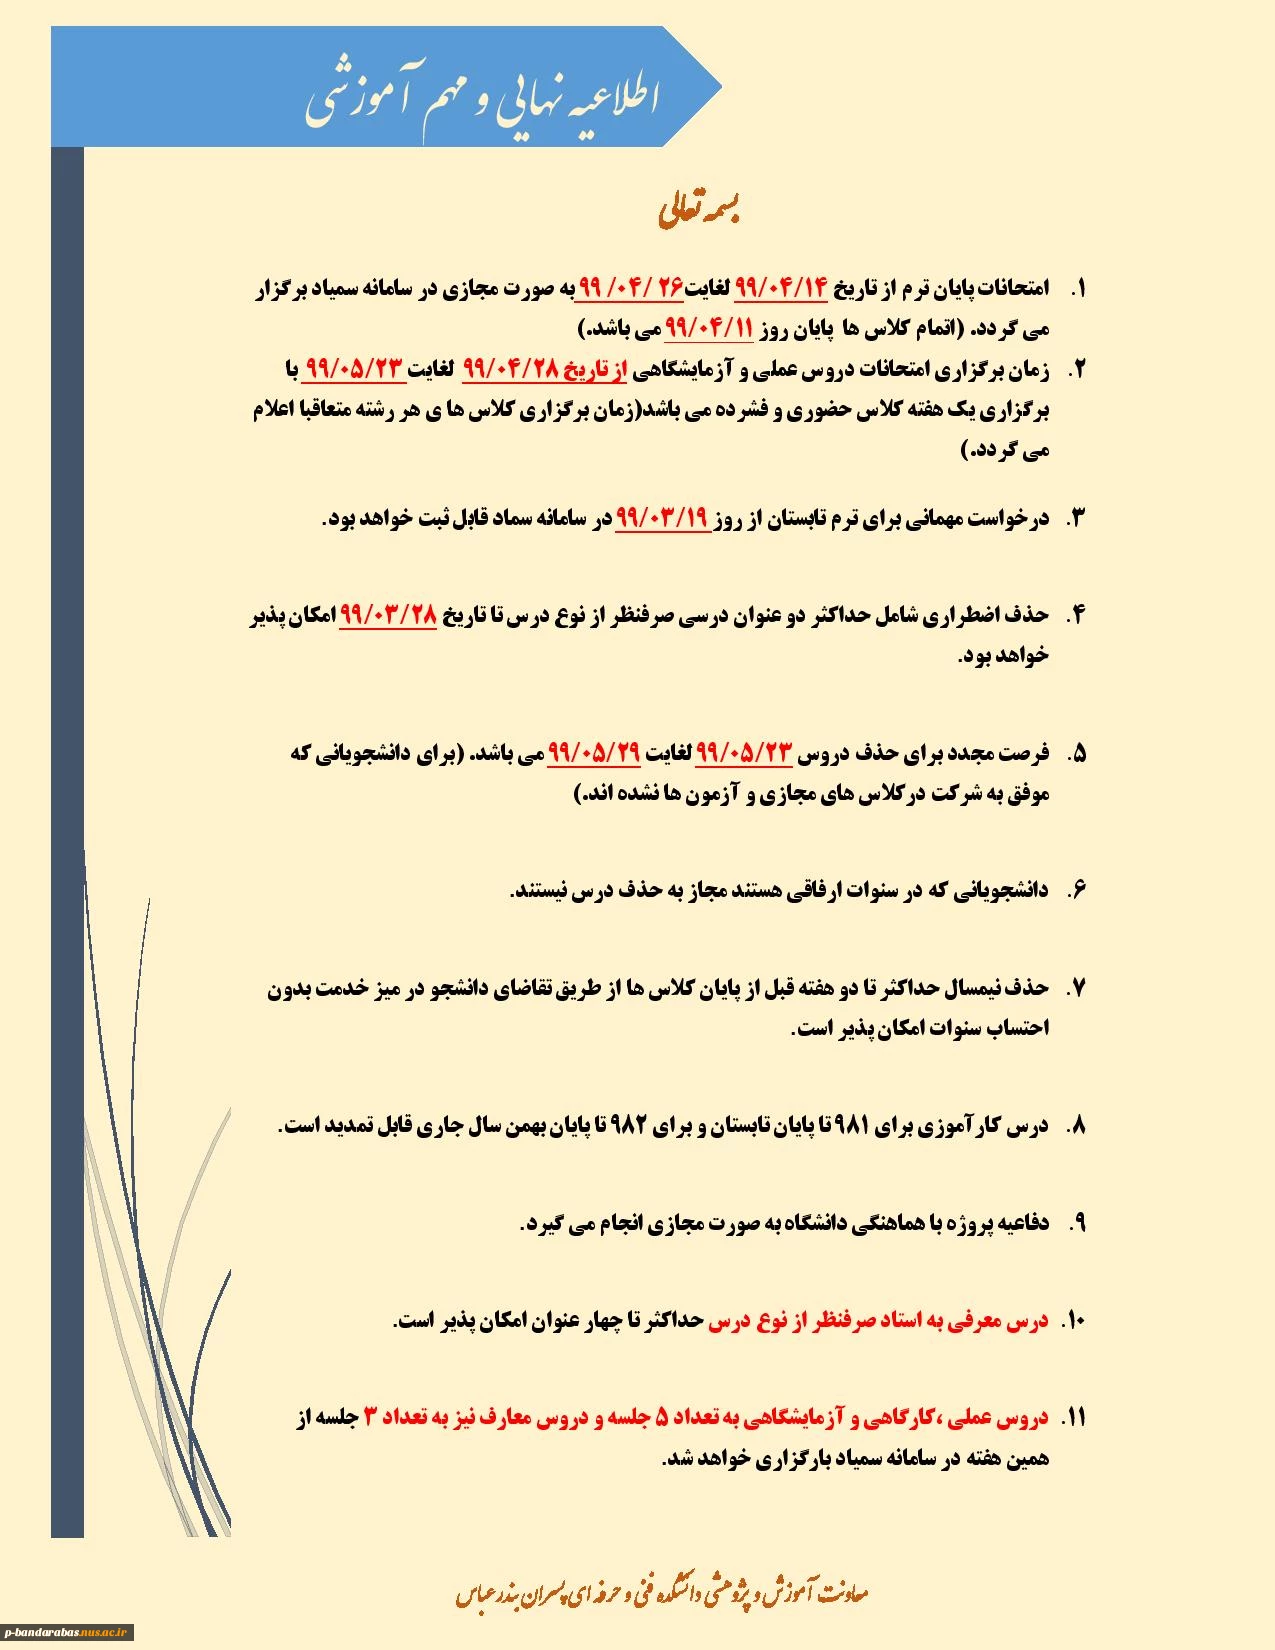 اطلاعیه نهایی و مهم آموزشی
بسمه تعالی
۱. امتحانات پایان ترم از تاریخ ۹۹/۰۴/۱۴ لغایت ۲۶ /۰۴/ ۹۹ به صورت مجازی در سامانه سمیاد برگزار
می گردد. (اتمام کلاس ها پایان روز ۹۹/۰۴/۱۱ می باشد.)
۲. زمان برگزاری امتحانات دروس عملی و آزمایشگاهی از تاریخ ۹۹/۰۴/۲۸ لغایت ۹۹/۰۵/۲۳ با
برگزاری یک هفته کلاس حضوری و فشرده می باشد(زمان برگزاری کلاس ها ی هر رشته متعاقبا اعلام
می گردد.)
۳. درخواست مهمانی برای ترم تابستان از روز ۹۹/۰۳/۱۹ در سامانه سماد قابل ثبت خواهد بود.
۴. حذف اضطراری شامل حداکثر دو عنوان درسی صرفنظر از نوع درس تا تاریخ ۹۹/۰۳/۲۸ امکان پذیر
خواهد بود.
۵. فرصت مجدد برای حذف دروس ۹۹/۰۵/۲۳ لغایت ۹۹/۰۵/۲۹ می باشد. (برای دانشجویانی که
موفق به شرکت درکلاس های مجازی و آزمون ها نشده اند.)
۶. دانشجویانی که در سنوات ارفاقی هستند مجاز به حذف درس نیستند.
۷. حذف نیمسال حداکثر تا دو هفته قبل از پایان کلاس ها از طریق تقاضای دانشجو در میز خدمت بدون
احتساب سنوات امکان پذیر است.
۸. درس کارآموزی برای ۹۸۱ تا پایان تابستان و برای ۹۸۲ تا پایان بهمن سال جاری قابل تمدید است.
۹. دفاعیه پروژه با هماهنگی دانشگاه به صورت مجازی انجام می گیرد.
۱۰. درس معرفی به استاد صرفنظر از نوع درس حداکثر تا چهار عنوان امکان پذیر است.
۱۱. دروس عملی ،کارگاهی و آزمایشگاهی به تعداد ۵ جلسه و دروس معارف نیز به تعداد ۳ جلسه از
همین هفته در سامانه سمیاد بارگزاری خواهد شد.
معاونت آموزش و پژوهشی دانشکده فنی و حرفه ای پسران بندرعباس
p-bandarabas.nus.ac.ir